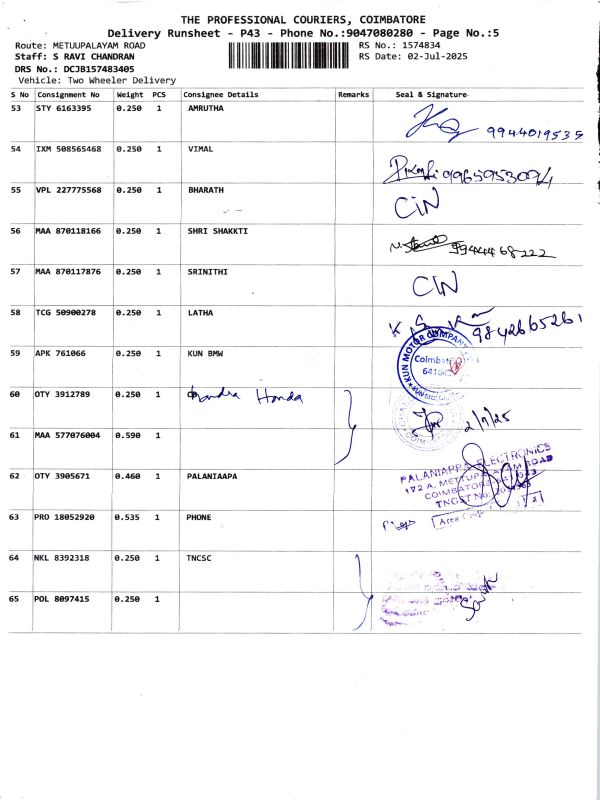 THE PROFESSIONAL COURIERS, COIMBATORE
Delivery Runsheet - P43 - Phone No.:9047080280 - Page No.:5
Route: METUUPALAYAM ROAD RS No.: 1574834
Staff: S RAVI CHANDRAN RS Date: 02-Jul-2025
DRS No.: DCJB157483405
Vehicle: Two Wheeler Delivery
S No Consignment No Weight PCS Consignee Details Remarks Seal & Signature
53 STY 6163395 0.250 1 AMRUTHA
9944019535
54 IXM 508565468 0.250 1 VIMAL
9965953094
55 VPL 227775568 0.250 1 BHARATH CIN
56 MAA 870118166 0.250 1 SHRI SHAKKTI
9944468222
57 MAA 870117876 0.250 1 SRINITHI CIN
58 TCG 50900278 0.250 1 LATHA
9842665261
59 APK 761066 0.250 1 KUN BMW
KUN MOTOR COMPANY
Coimbatore
60 OTY 3912789 0.250 1 Chandra Honda
2/7/25
61 MAA 577076004 0.590 1
62 OTY 3905671 0.460 1 PALANIAAPA
PALANIAPPA ELECTRONICS
172 A, METTUPALAYAM ROAD
COIMBATORE
TNGST No:
63 PRO 18052920 0.535 1 PHONE
64 NKL 8392318 0.250 1 TNCSC
65 POL 8097415 0.250 1